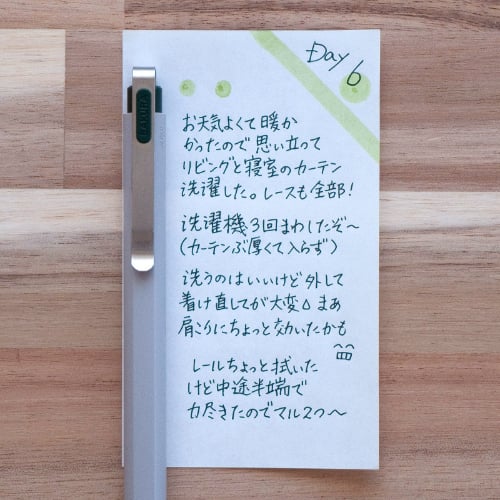 Day 6
お天気よくて暖か
かったので思い立って
リビングと寝室のカーテン
洗濯した。レースも全部！
洗濯機3回まわしたぞ～
(カーテンぶ厚くて入らず)
洗うのはいいけど外して
着け直してが大変△まあ
肩こりにちょっと効いたかも
レールちょっと拭いた
けど中途半端で
力尽きたのでマル2つ～